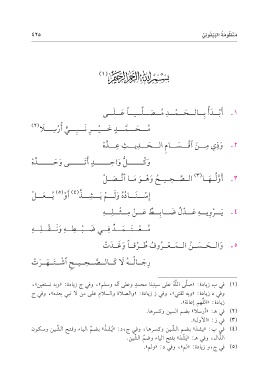 مَنْظُومَةُ البَيْقُونِيِّ ٤٢٥
بِسْمِ اللَّهِ الرَّحْمَنِ الرَّحِيمِ (١)
١ - أَبْدَأُ بِالحَمْدِ مُصَلِّياً عَلَى
مُحَمَّدٍ خَيْرِ نَبِيٍّ أُرْسِلَا (٢)
٢ - وَذِي مِنَ اَقْسَامِ الحَدِيثِ عِدَّهْ
وَكُلُّ وَاحِدٍ أَتَى وَحَدَّهْ
٣ - أَوَّلُهَا (٣) الصَّحِيحُ وَهْوَ مَا اتَّصَلْ
إِسْنَادُهُ وَلَمْ يَشِذَّ (٤) أَوْ (٥) يُعَلْ
٤ - يَرْوِيهِ عَدْلٌ ضَابِطٌ عَنْ مِثْلِهِ
مُعْتَمَدٌ فِي ضَبْطِهِ وَنَقْلِهِ
٥ - وَالحَسَنُ المَعْرُوفُ طُرْقاً وَغَدَتْ
رِجَالُهُ لَا كَالصَّحِيحِ اشْتَهَرَتْ
(١) في ب زيادة: «صلَّى اللَّه على سيدنا محمد وعلى آله وسلم»، وفي ج زيادة: «وبه نستعين»،
وفي د زيادة: «وبه ثقتي»، وفي ز زيادة: «والصلاة والسلام على من لا نبي بعده»، وفي ح
زيادة:
(٢) في هـ: «أرسلا» بضم السين وكسرها.
(٣) في ز: «الأول».
(٤) في ب: «يشذ» بضم الشِّين وكسرها، وفي ج، د: «يُشَذْ» بضمِّ الياء وفتح الشِّين وسكون
الذَّال، وفي هـ: «يُشَذَّ» بضم الياء وفتح الشِّين.
(٥) في ج، و زيادة: «لم»، وفي د: «ولم».